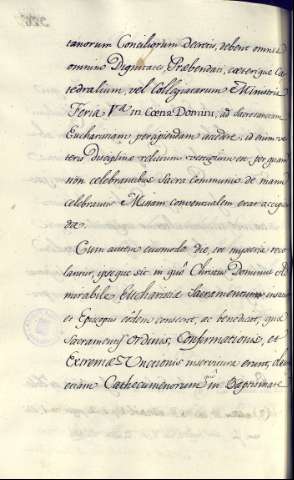 tanorum Conciliorum Decretis, debent omnes
omnino Dignitates, Præbendati, cæterique Ca
tedralium, vel Collegiatarum Ministri
Feria Vª in Cœna Domini, ad sacrosanctam
Eucharistiam percipiendam accedere, id enim ve
teris disciplinæ relictum vestigium est, per quam
non celebrantibus Sacra Communio de manu
celebrantis Missam conventualem erat accipien
da.
Cum autem eiusmodi die, tot mysteria reco
lantur, ipseque sit in quo Christus Dominus
mirabile Eucharistiæ Sacramentum
et Episcopus eodem consecret, ac benedicat, quæ
Sacramentis Ordinis, Confirmationis, et
Extremæ Unctionis inservitura erunt,
etiam Cathecumenorum in Baptismate